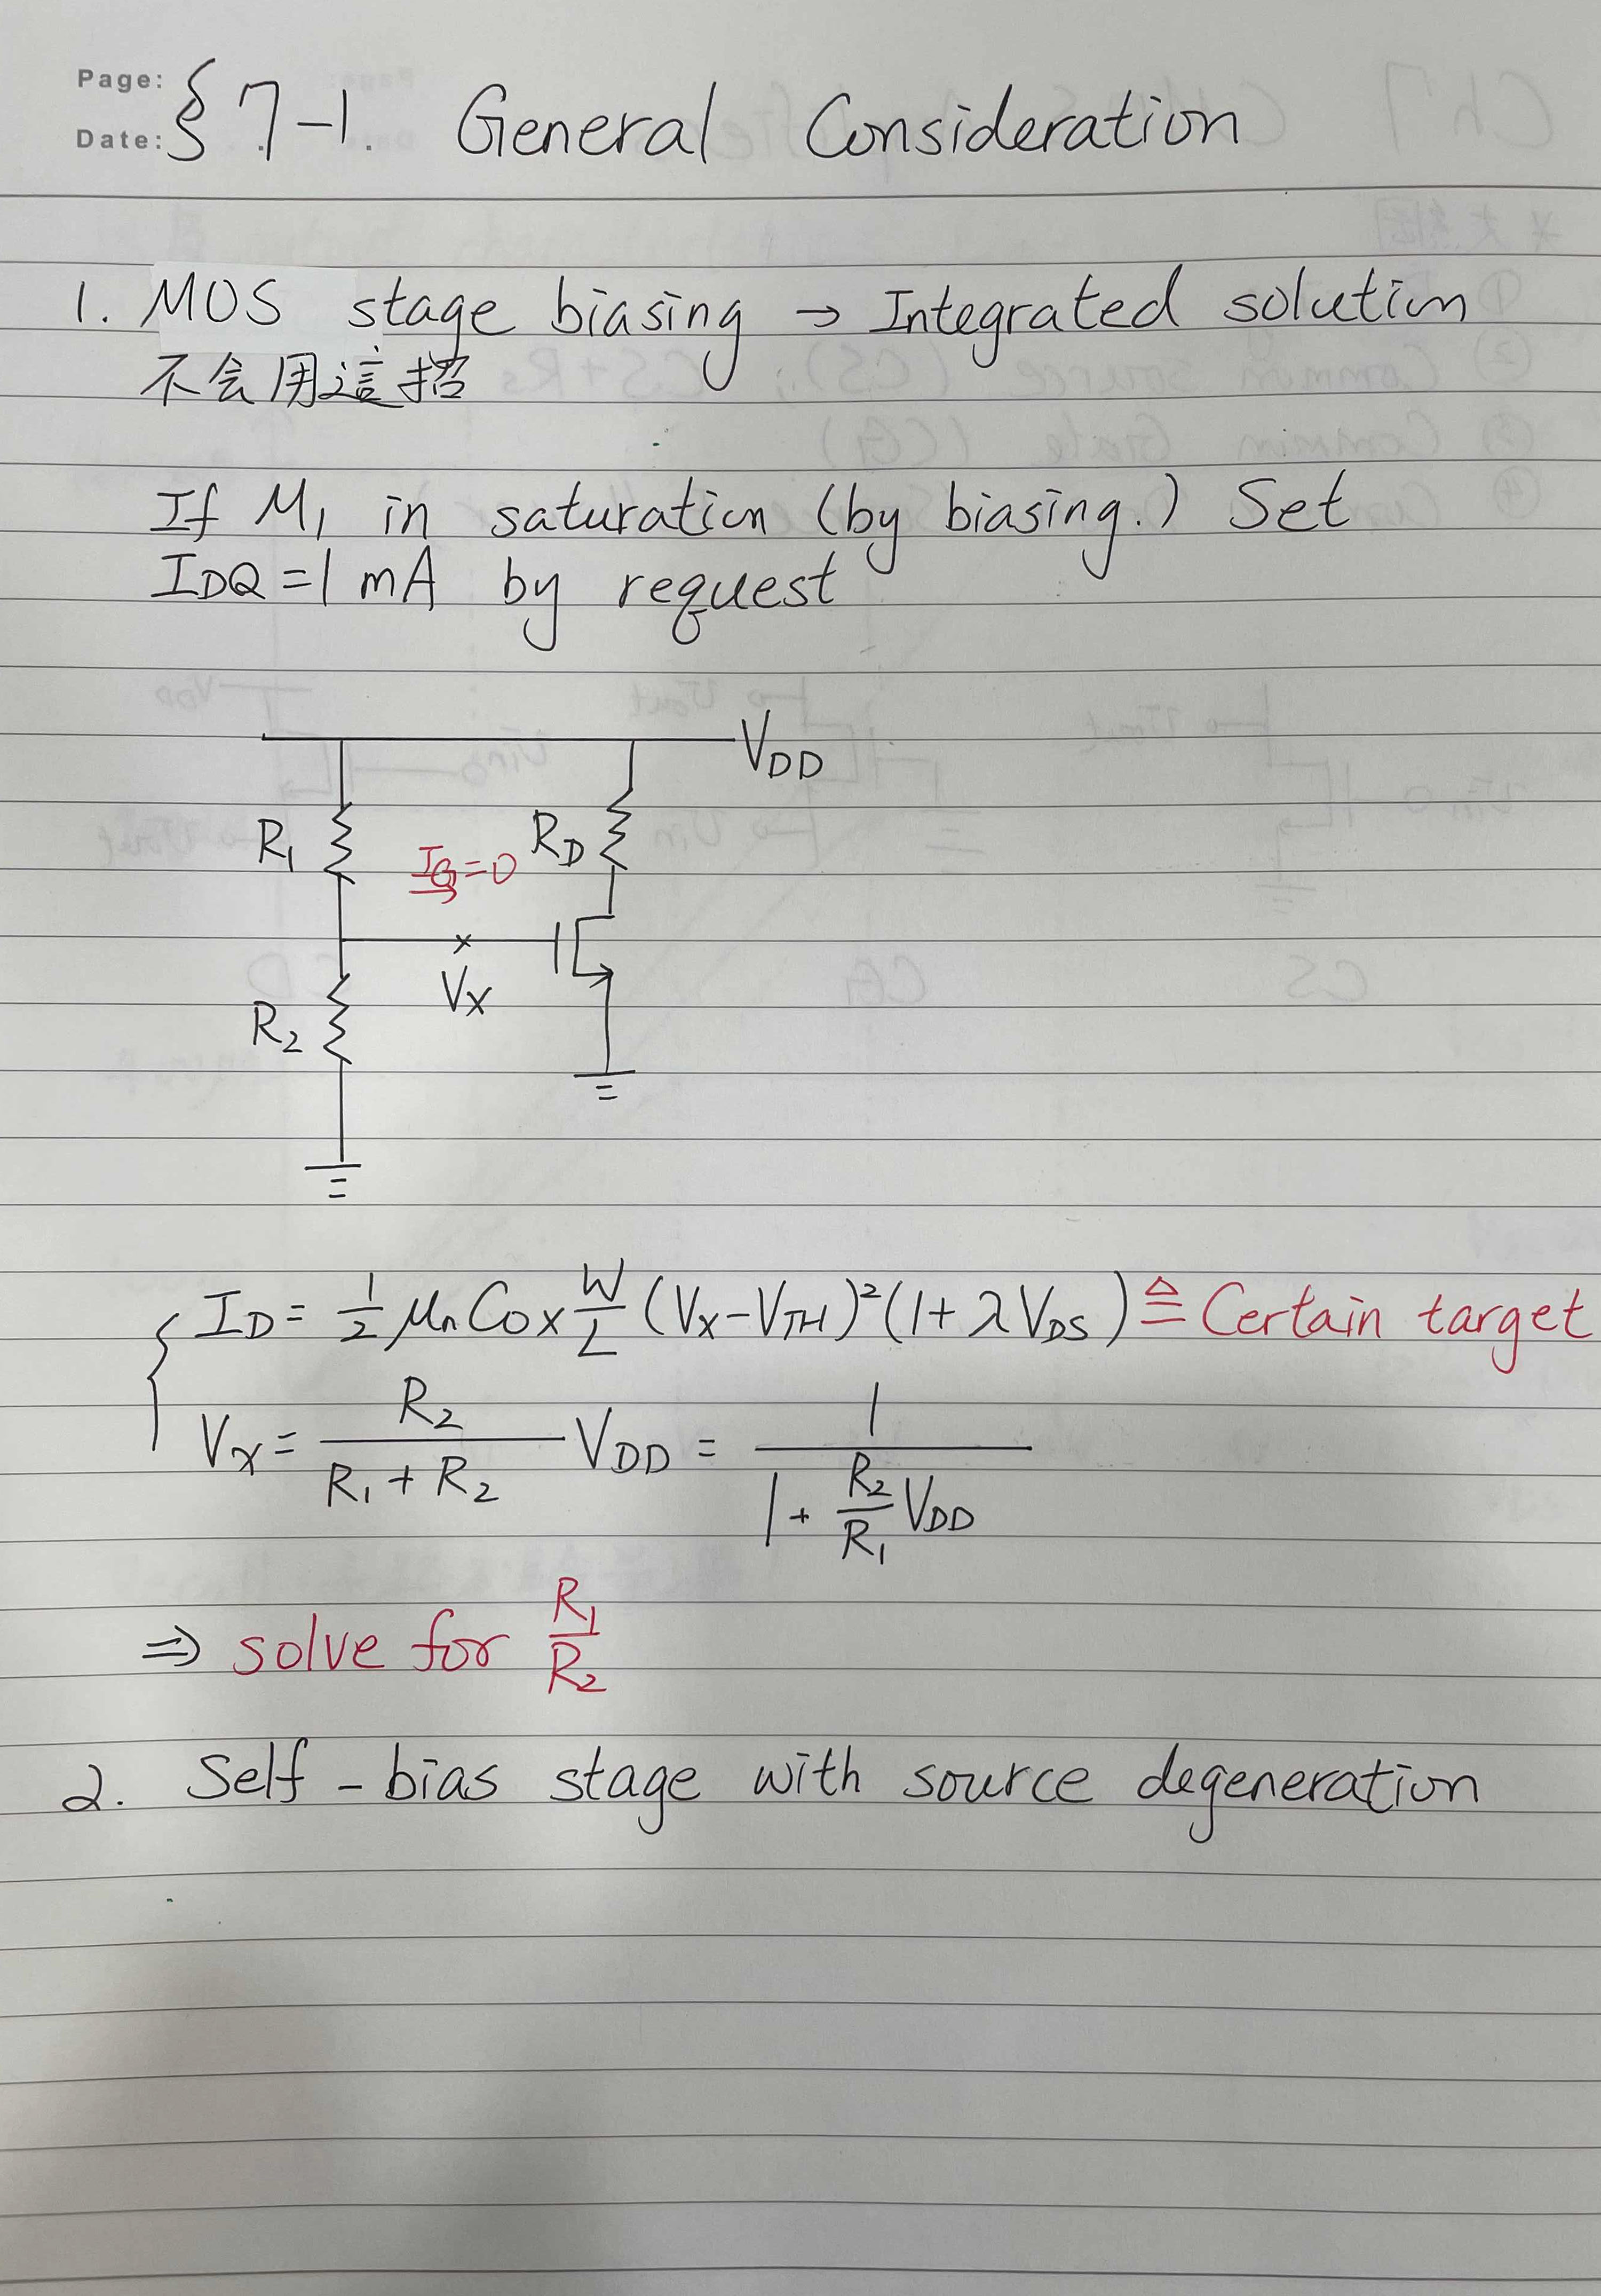 Page:
Date:
§ 7-1. General Consideration
1. MOS stage biasing → Integrated solution
不会用這招
If M₁ in saturation (by biasing.) Set
I_DQ = 1 mA by request
V_DD
R₁
I_G = 0
R_D
V_X
R₂
I_D = 1/2 μₙCox W/L (V_X - V_TH)² (1 + λV_DS) ≜ Certain target
V_X = R₂/(R₁ + R₂) V_DD = 1/(1 + R₂/R₁ V_DD)
⇒ solve for R₁/R₂
2. Self-bias stage with source degeneration